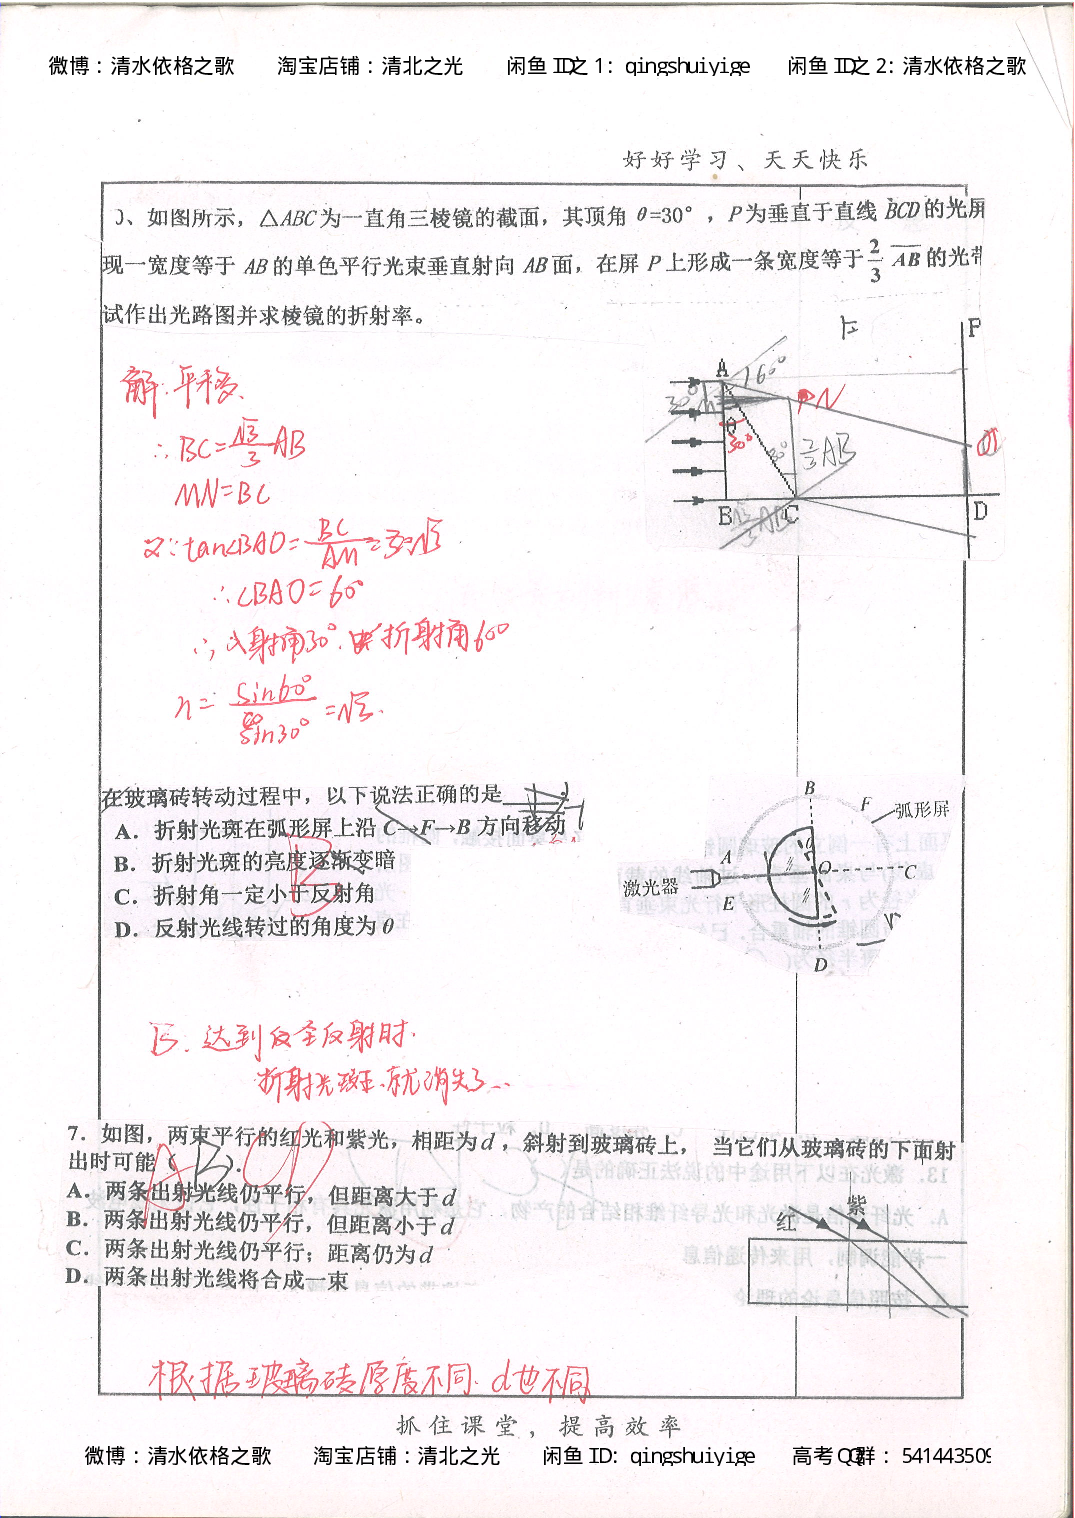 微博：清水依格之歌 淘宝店铺：清北之光 闲鱼 ID之 1：qingshuiyige 闲鱼 ID之 2：清水依格之歌
好好学习、天天快乐
)、如图所示，△ABC为一直角三棱镜的截面，其顶角 θ=30°，P为垂直于直线 BCD的光屏
现一宽度等于 AB 的单色平行光束垂直射向 AB 面，在屏 P 上形成一条宽度等于 2/3 AB 的光带
试作出光路图并求棱镜的折射率。
解:平移、
∴BC=√3/3 AB
MN=BC
又∵tan∠BAO=BC/AM=3=√3
∴∠BAO=60°
∴入射角30°. 折射角60°
n= sin60°/sin30° =√3.
A 60° P
30° M N
θ 30° 30° 2/3AB
B √3/3AB C D
在玻璃砖转动过程中，以下说法正确的是
A．折射光斑在弧形屏上沿 C→F→B 方向移动
B．折射光斑的亮度逐渐变暗
C．折射角一定小于反射角
D．反射光线转过的角度为 θ
B
B F 弧形屏
A O C
激光器 E
D
B. 达到全反射时.
折射光斑.就消失了...
7．如图，两束平行的红光和紫光，相距为 d ，斜射到玻璃砖上， 当它们从玻璃砖的下面射
出时可能（ B ）．
A．两条出射光线仍平行，但距离大于 d
B．两条出射光线仍平行，但距离小于 d
C．两条出射光线仍平行；距离仍为 d
D．两条出射光线将合成一束
红 紫
根据玻璃砖厚度不同. d也不同
抓住课堂，提高效率
微博：清水依格之歌 淘宝店铺：清北之光 闲鱼 ID：qingshuiyige 高考 QQ群：541443509